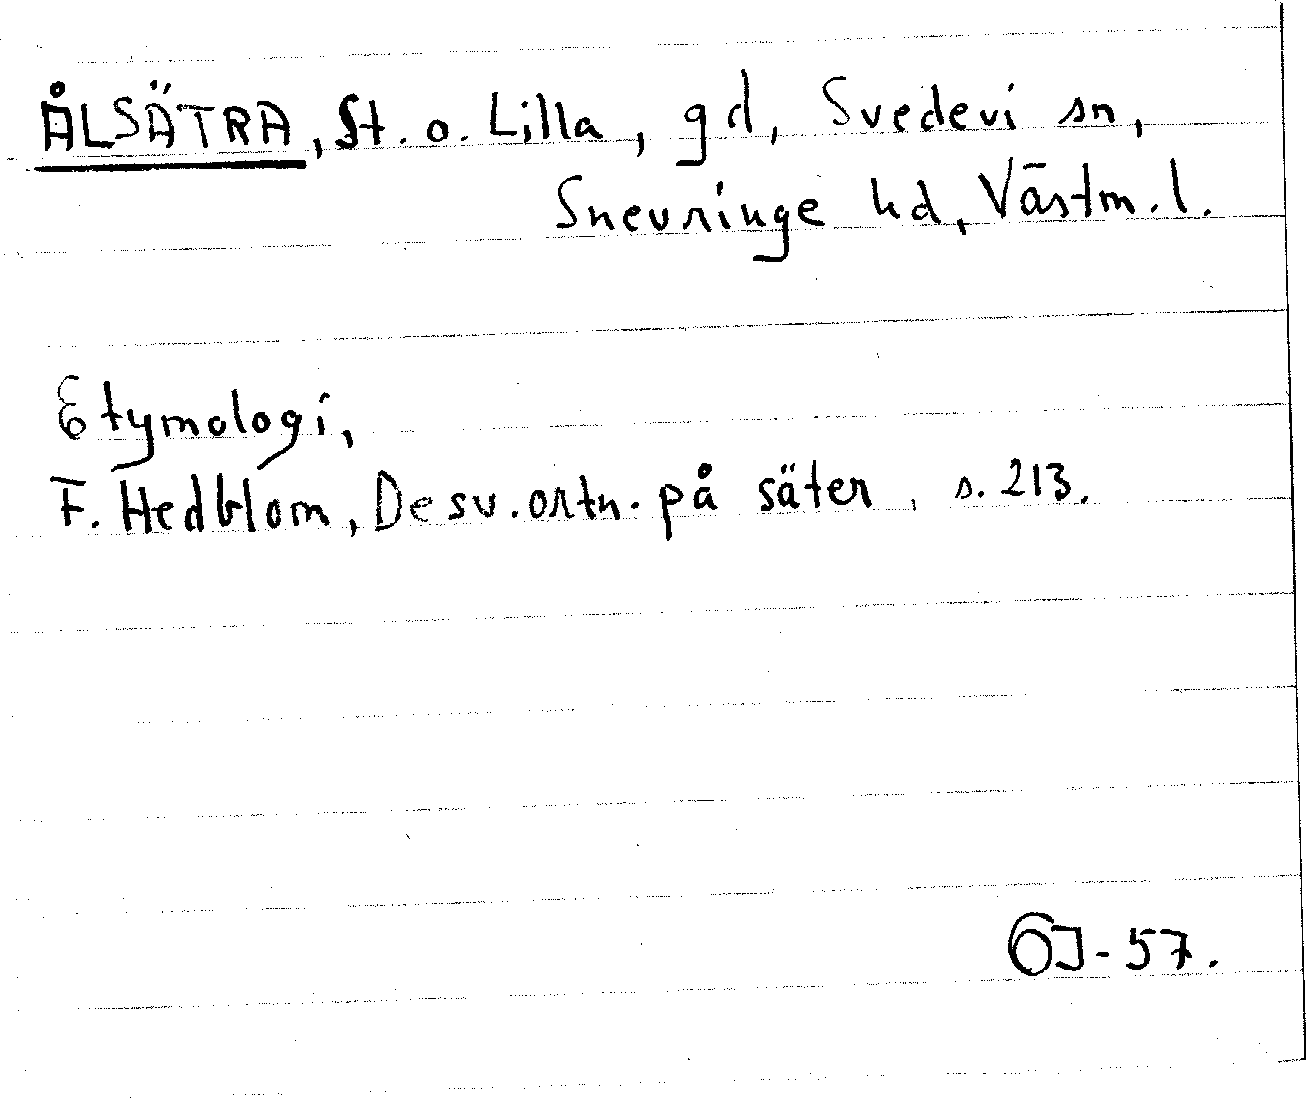 ÅLSÄTRA, St. o. Lilla, gd, Svedevi sn,
Snevringe hd, Västm. l.
Etymologi,
F. Hedblom, De sv. ortn. på säter, s. 213.
GJ-57.